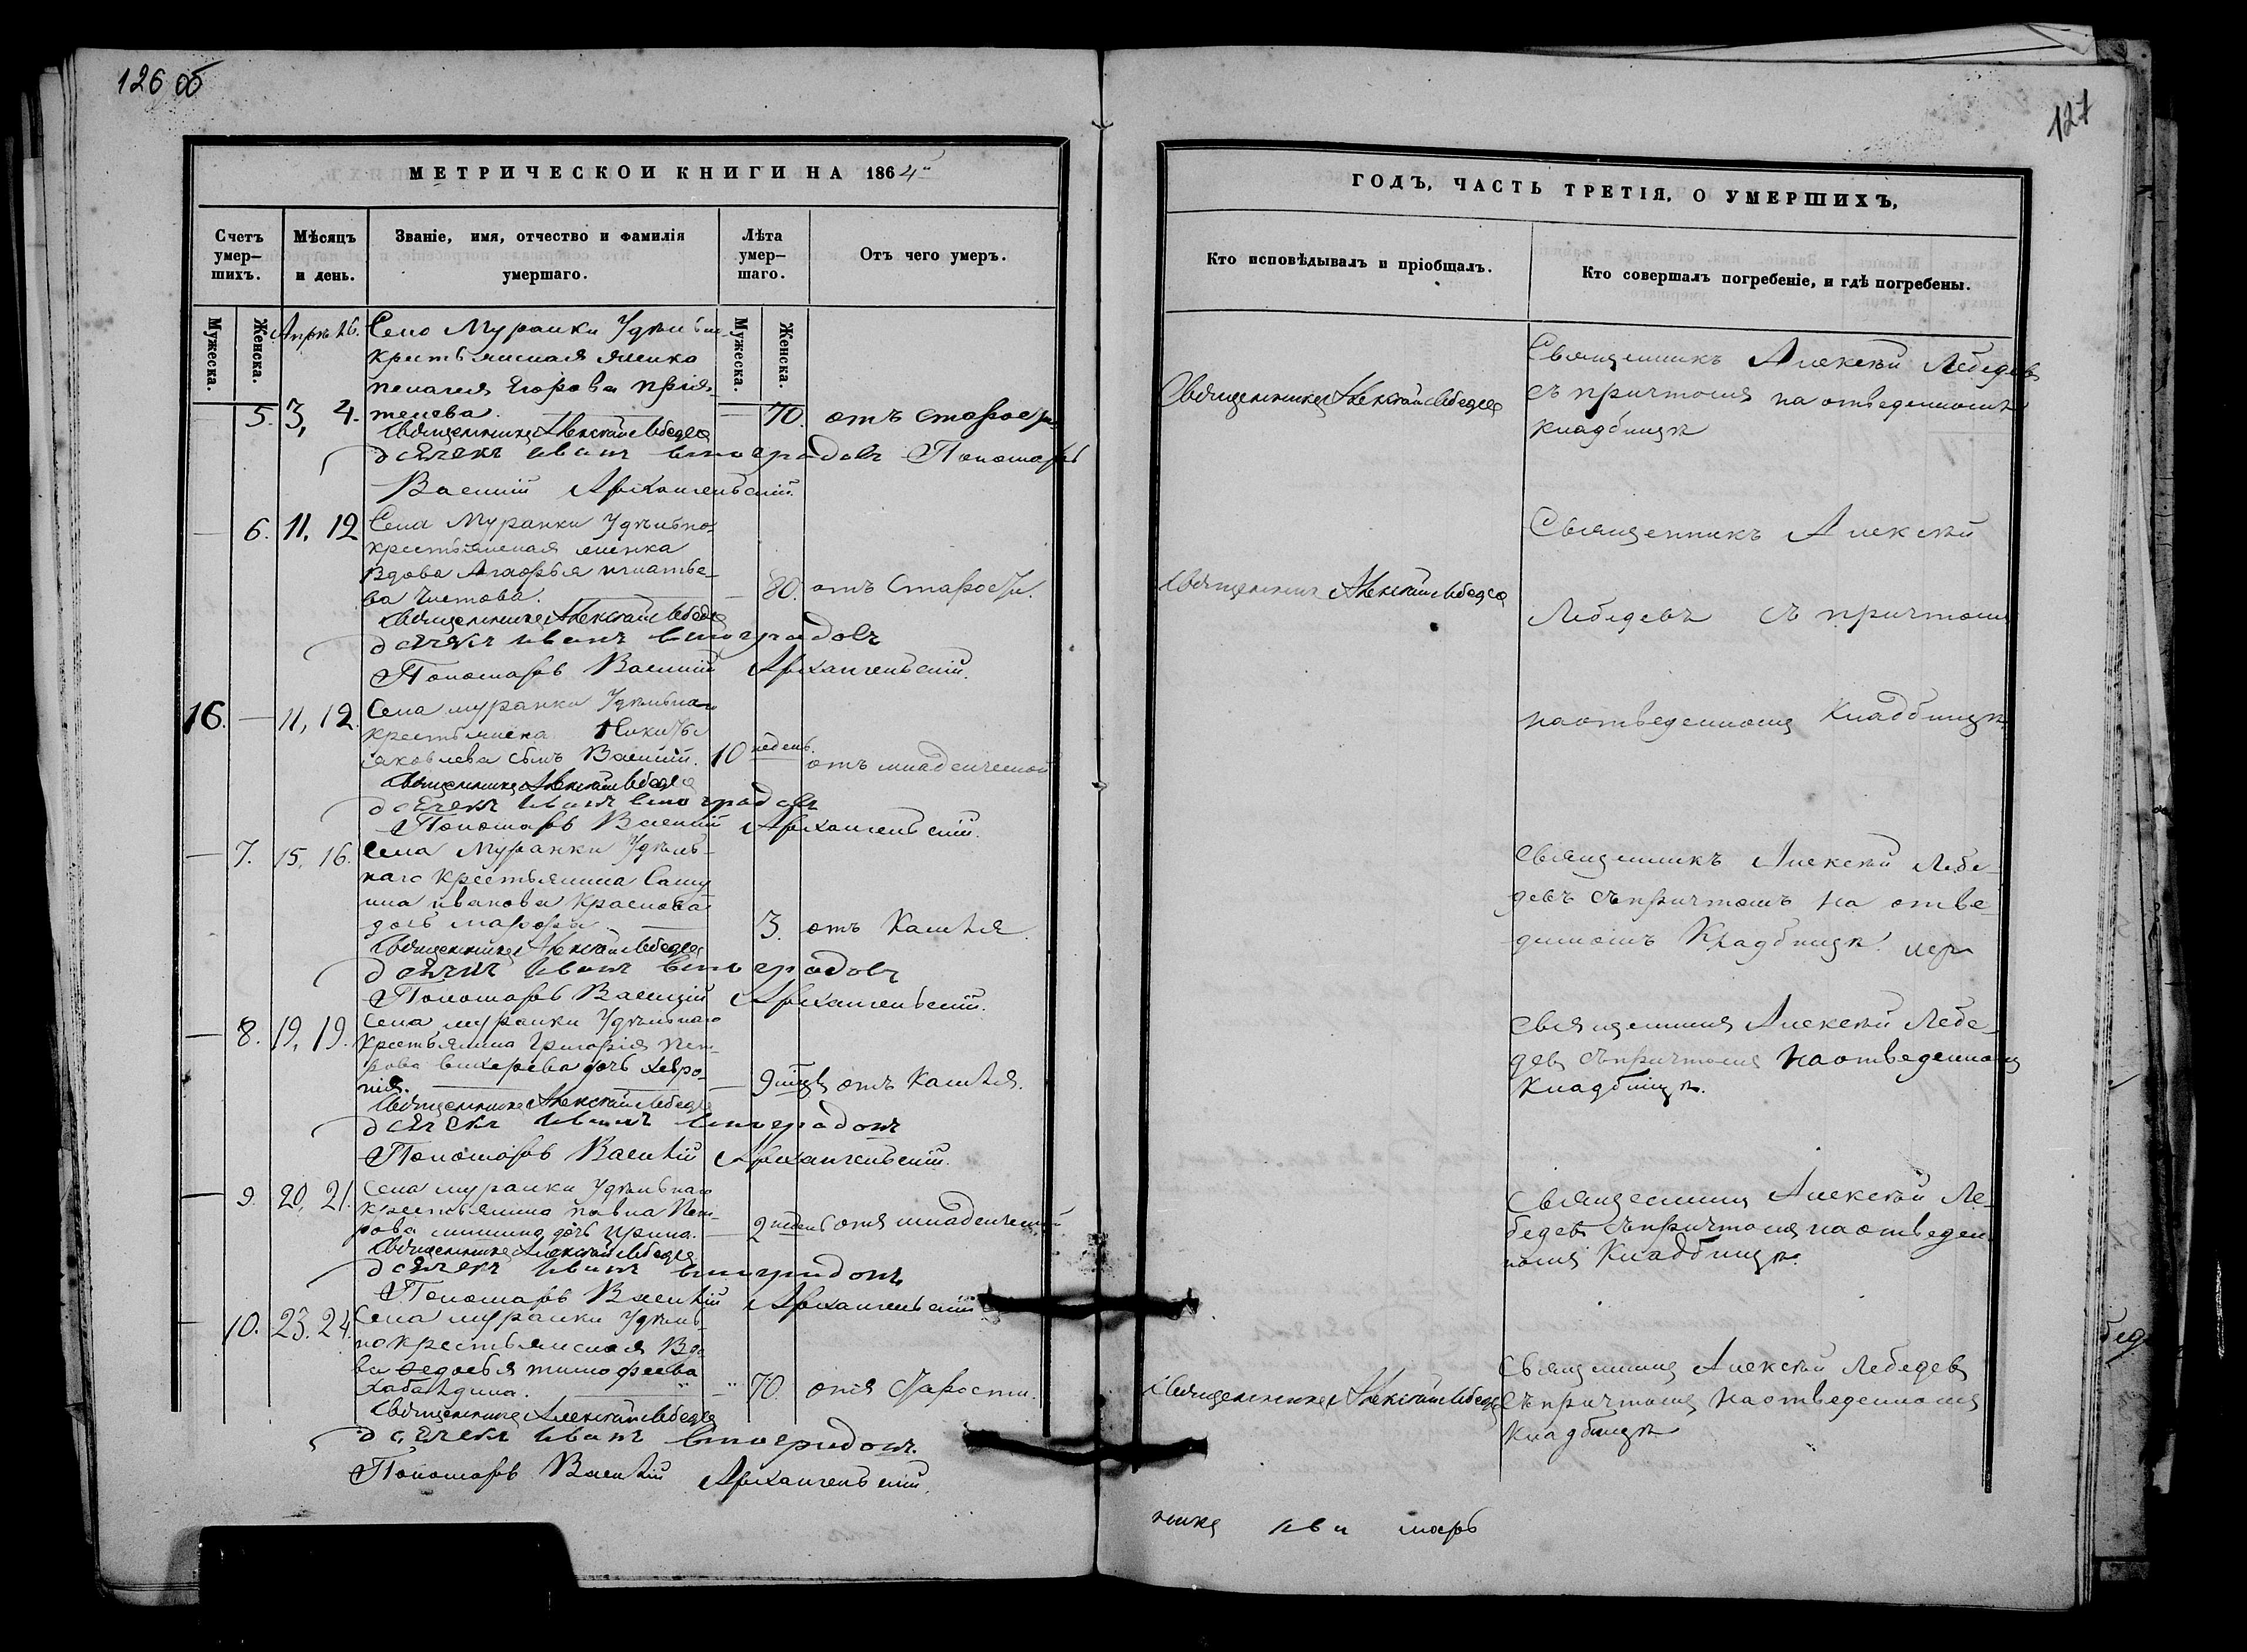 126 об
МЕТРИЧЕСКОЙ КНИГИ НА 1864й
Счетъ умер-
шихъ.
Мѣсяцъ
и день.
Званіе, имя, отчество и фамилія
умершаго.
Лѣта
умер-
шаго.
Отъ чего умеръ.
Мужеска.
Женска.
Мужеска.
Женска.
Село Муранки Удѣльн
крестьянская женка
Пелагея Егорова Прія-
5. 3, 4. телева. 70. отъ старости
Священникъ Алексѣй Лебедевъ
дьячекъ Иванъ Виноградовъ Пономарь
Василій Архангельскій.
6. 11, 12 Села Муранки Удѣльно-
крестьянская женка
Вдова Агафья Игнатье-
ва Чистова. 80. отъ старости.
Священникъ Алексѣй Лебедевъ
дьячекъ Иванъ Виноградовъ
Пономарь Василій Архангельскій.
16. 11, 12. Села Муранки Удѣльнаго
крестьянина Никиты
Яковлева сынъ Василій. 10 недель. отъ младенческой
Священникъ Алексѣй Лебедевъ
дьячекъ Иванъ Виноградовъ
Пономарь Василій Архангельскій.
7. 15, 16. Села Муранки Удѣль-
наго крестьянина Саму-
ила Иванова Краснова
дочь Марфа 3. отъ кашля.
Священникъ Алексѣй Лебедевъ
дьячекъ Иванъ Виноградовъ
Пономарь Василій Архангельскій.
8. 19, 19. Села Муранки Удѣльнаго
крестьянина Григорія Пет-
рова Вихерева дочь Хевро-
нія. 9 отъ кашля.
Священникъ Алексѣй Лебедевъ
дьячекъ Иванъ Виноградовъ
Пономарь Василій Архангельскій.
9. 20, 21. Села Муранки Удѣльнаго
крестьянина Павла Пет-
рова дочь Ирина. 2 недель отъ младенческой
Священникъ Алексѣй Лебедевъ
дьячекъ Иванъ Виноградовъ
Пономарь Василій Архангельскій
10. 23. 24. Села Муранки Удѣль-
но крестьянская Вдо-
ва Федосья Тимофеева
70. отъ старости.
Священникъ Алексѣй Лебедевъ
дьячекъ Иванъ Виноградовъ.
Пономарь Василій Архангельскій.
127
ГОДЪ, ЧАСТЬ ТРЕТІЯ, О УМЕРШИХЪ,
Кто исповѣдывалъ и пріобщалъ.
Кто совершалъ погребеніе, и гдѣ погребены.
Священникъ Алексѣй Лебедевъ
Священникъ Алексѣй Лебедевъ
съ причтомъ на отведенномъ
кладбищѣ
Священникъ Алексѣй Лебедевъ
Священникъ Алексѣй
Лебедевъ съ причтомъ
на отведенномъ кладбищѣ
Священникъ Алексѣй Лебе-
девъ съ причтомъ на отве-
денномъ кладбищѣ.
Священникъ Алексѣй Лебе-
девъ съ причтомъ на отведенномъ
кладбищѣ.
Священникъ Алексѣй Ле-
бедевъ съ причтомъ на отведен
номъ кладбищѣ.
Священникъ Алексѣй Лебедевъ
Священникъ Алексѣй Лебедевъ
съ причтомъ на отведенномъ
кладбищѣ